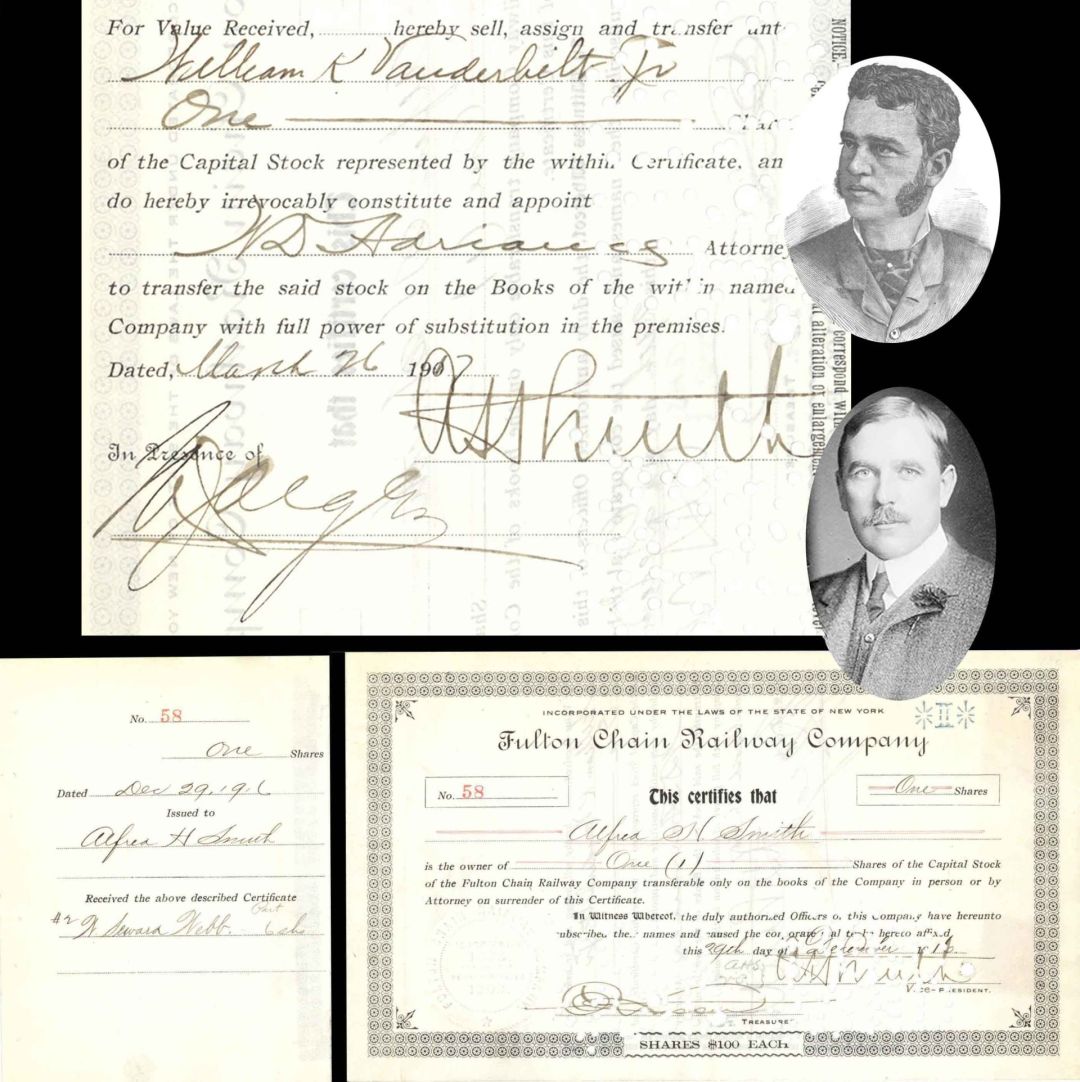 For Value Received, hereby sell, assign and transfer unt
William K Vanderbilt Jr
One
of the Capital Stock represented by the within Certificate, an
do hereby irrevocably constitute and appoint
Attorney
to transfer the said stock on the Books of the within named
Company with full power of substitution in the premises.
Dated, March 26 1917
In Presence of
NOTICE.
correspond with
alteration or enlargement
No. 58
One Shares
Dated Dec 29, 1916
Issued to
Alfred H Smith
Received the above described Certificate
#2 W Seward Webb.
INCORPORATED UNDER THE LAWS OF THE STATE OF NEW YORK
Fulton Chain Railway Company
No. 58
This certifies that
One Shares
Alfred H Smith
is the owner of One (1) Shares of the Capital Stock
of the Fulton Chain Railway Company transferable only on the books of the Company in person or by
Attorney on surrender of this Certificate.
In Witness Whereof, the duly authorized Officers of this Company have hereunto
subscribed their names and caused the corporate seal to be hereto affixed,
this 29th day of December 1916
AHS
VICE-PRESIDENT.
TREASURER
SHARES $100 EACH